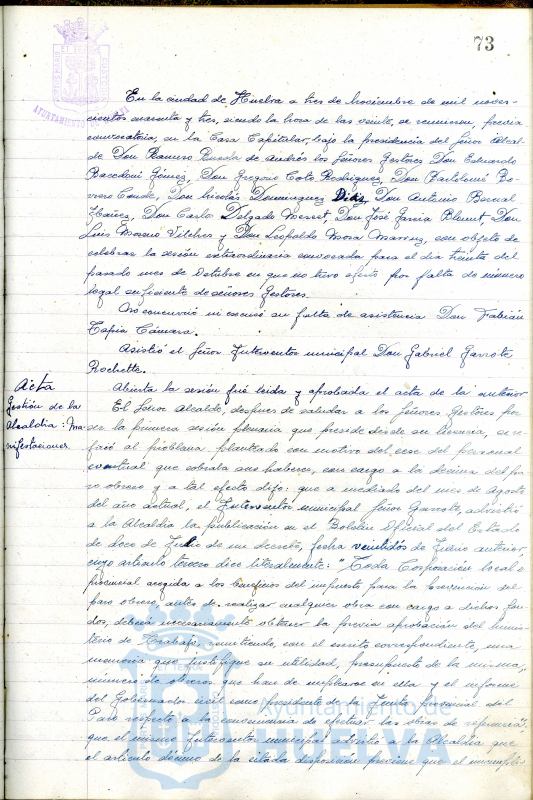 73
En la ciudad de Huelva a tres de Noviembre de mil nove-
cientos cuarenta y tres, siendo la hora de las veinte, se reunieron, previa
convocatoria, en la Casa Capitular, bajo la presidencia del Señor Alcal-
de Don Ramiro los Señores Gestores Don Eduardo
Gómez, Don Gregorio Coto Rodríguez, Don Bartolomé Bo-
rrero Conde, Don Nicolás Dominguez Díaz, Don Antonio Bernal
Ibañez, Don Carlo Delgado Don José Garcia Don
Luis Moreno Vilches y Don Leopoldo Mora con objeto de
celebrar la sesión extraordinaria convocada para el dia treinta del
pasado mes de Octubre en que no tuvo efecto por falta de número
legal suficiente de señores Gestores.
No concurrió ni excusó su falta de asistencia Don Fabián
Tapia Cámara.
Asistió el Señor Interventor municipal Don Gabriel Garrote
Rochette.
Acta
Abierta la sesión fué leida y aprobada el acta de la anterior
Gestión de la
Alcaldia: Ma-
nifestaciones
El Señor Alcalde, despues de saludar a los Señores Gestores por
ser la primera sesión plenaria que preside desde su licencia, se re-
firió al problema planteado con motivo del cese del personal
eventual que cobraba sus haberes, con cargo a la decima del pa-
ro obrero y a tal efecto dijo: que a mediado del mes de Agosto
del año actual, el Interventor municipal Señor Garrote, advirtió
a la Alcaldia la publicación en el Boletin Oficial del Estado
de doce de Julio de un decreto, fecha veintidós de Junio anterior,
cuyo articulo tercero dice literalmente: "Toda Corporación local o
provincial acogida a los beneficios del impuesto para la prevención del
paro obrero, antes de realizar cualquier obra con cargo a dichos fon-
dos, deberá necesariamente obtener la previa aprobación del Minis-
terio de Trabajo, remitiendo, con el escrito correspondiente, una
memoria que justifique su utilidad, presupuesto de la misma,
número de obreros que han de emplearse en ella y el informe
del Gobernador civil como Presidente de la Junta Provincial del
Paro respecto a la conveniencia de efectuar las obras de referencia",
que el mismo Interventor municipal advirtió a la Alcaldia que
el articulo décimo de la citada disposición previene que el incumpli-
Ayuntamiento de
HUELVA